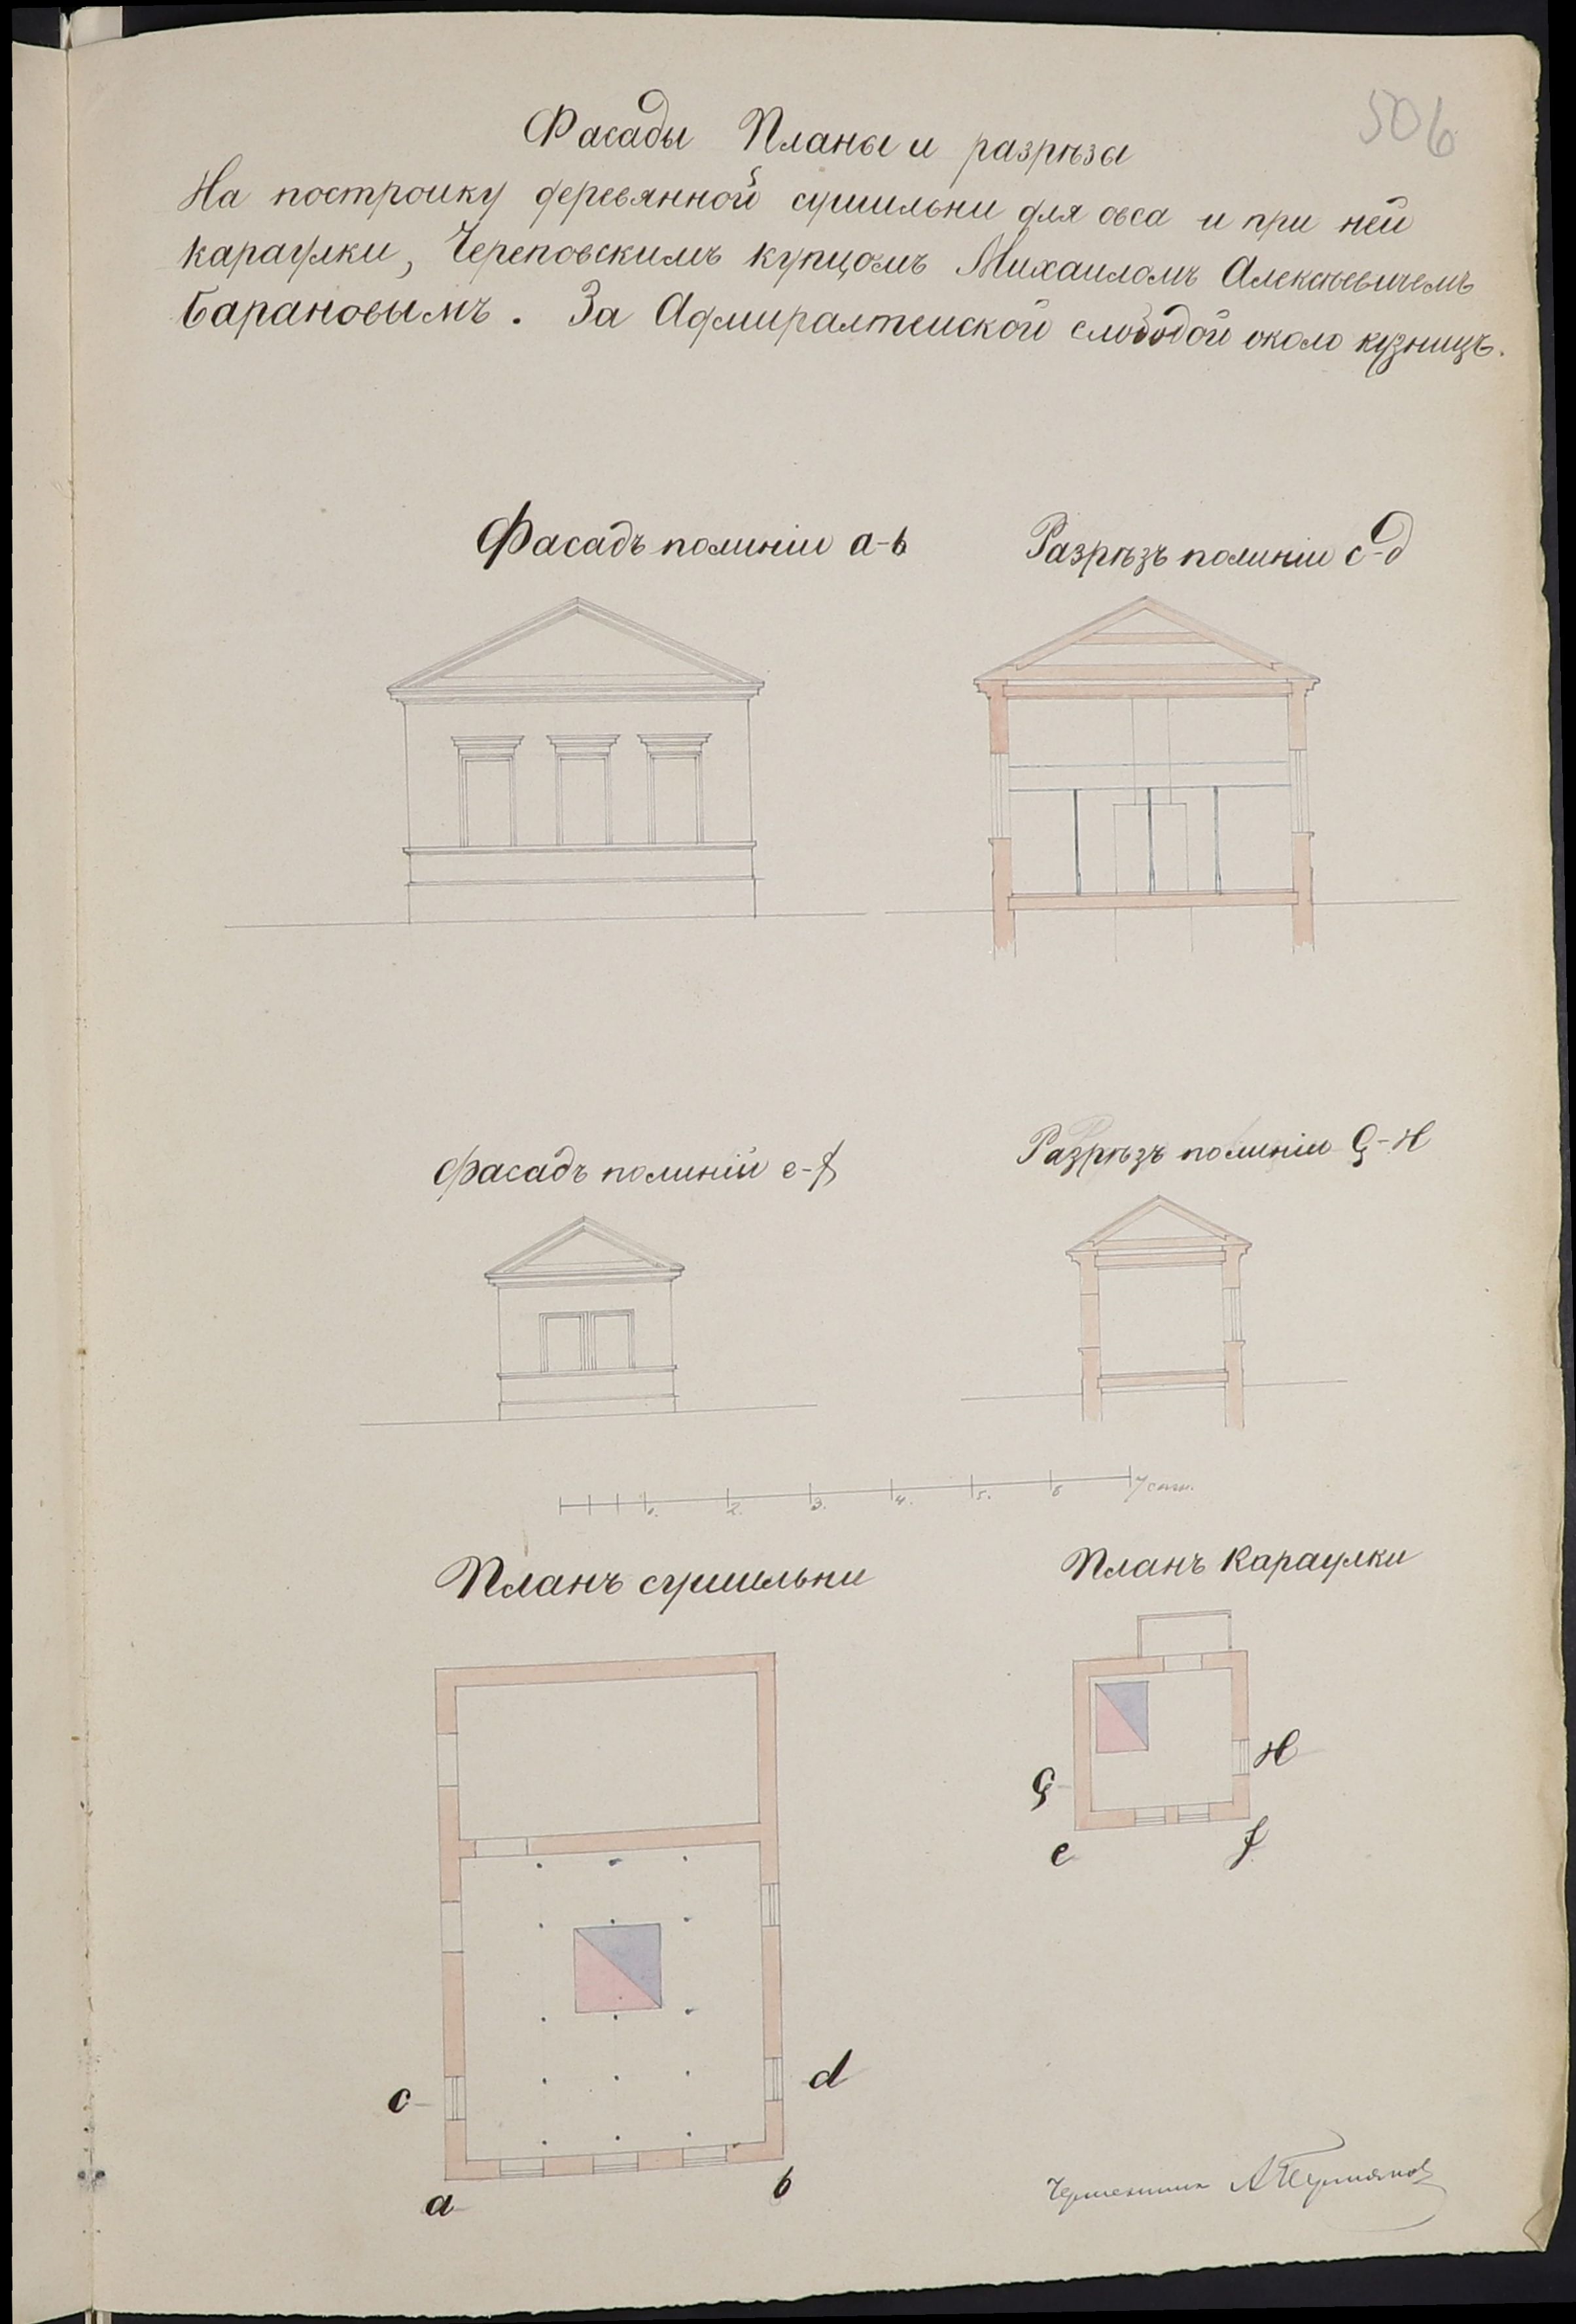 506
Фасады Планы и разрѣзы
На постройку деревянной сушильни для овса и при ней
караулки, Череповскимъ купцомъ Михаиломъ Алексѣевичемъ
Барановымъ. За Адмиралтейской слободой около кузницъ.
Фасадъ полиніи a-b
Разрѣзъ полиніи c-d
Фасадъ полиній e-f
Разрѣзъ полиніи G-H
1. 2. 3. 4. 5. 6 7 саж.
Планъ сушильни
Планъ Караулки
G H
e f
c d
a b
Чертежникъ